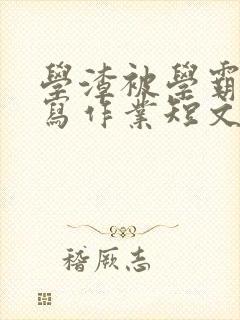 學渣被學霸
寫作業短文
稽厥志